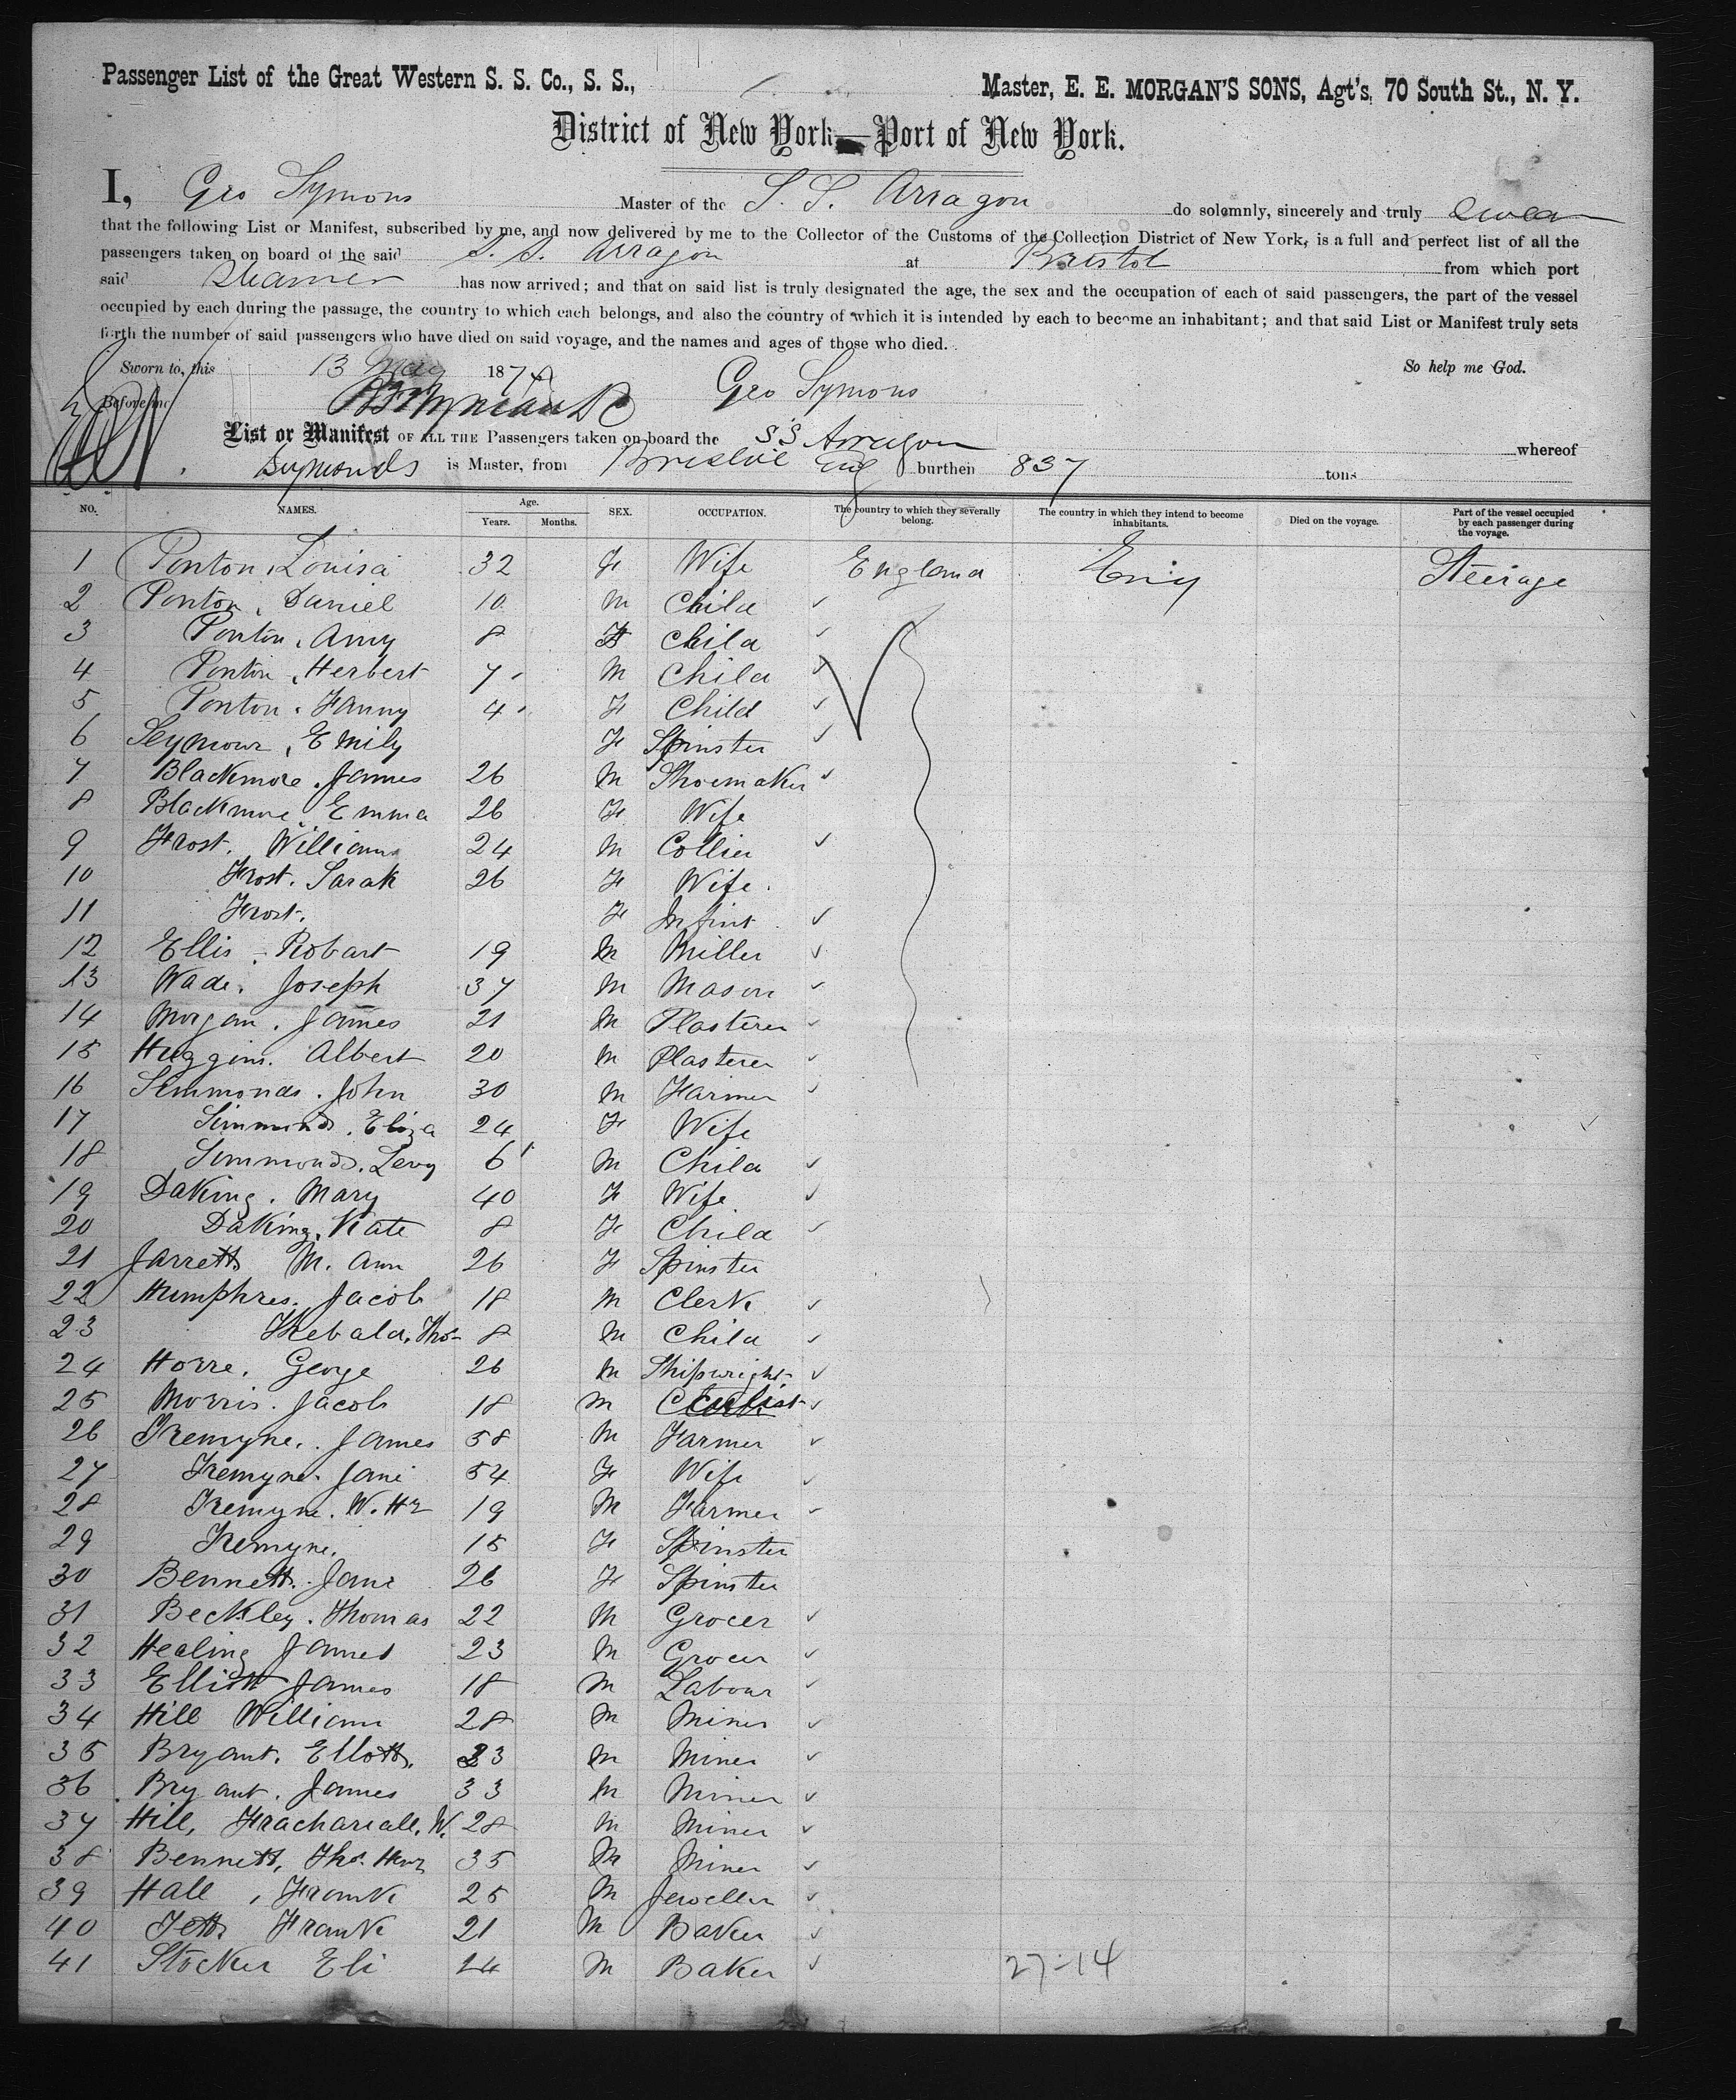 Passenger List of the Great Western S. S. Co., S. S., Master, E. E. MORGAN'S SONS, Agt's, 70 South St., N. Y.
District of New York—Port of New York.
I, Geo Symons Master of the S. S. Arragon do solemnly, sincerely and truly swear
that the following List or Manifest, subscribed by me, and now delivered by me to the Collector of the Customs of the Collection District of New York, is a full and perfect list of all the
passengers taken on board of the said S. S. Arragon at Bristol from which port
said Steamer has now arrived; and that on said list is truly designated the age, the sex and the occupation of each of said passengers, the part of the vessel
occupied by each during the passage, the country to which each belongs, and also the country of which it is intended by each to become an inhabitant; and that said List or Manifest truly sets
forth the number of said passengers who have died on said voyage, and the names and ages of those who died.
Sworn to, this 13 May 1874 So help me God.
Before me Geo Symons
List or Manifest OF ALL THE Passengers taken on board the SS Arragon whereof
Symonds is Master, from Bristol Eng burthen 837 tons
NO. NAMES. Age. Years. Months. SEX. OCCUPATION. The country to which they severally belong. The country in which they intend to become inhabitants. Died on the voyage. Part of the vessel occupied by each passenger during the voyage.
1 Ponton, Louisa 32 F Wife England Steerage
2 Ponton, Daniel 10 M Child
3 Ponton, Amy 8 F Child
4 Ponton, Herbert 7 M Child
5 Ponton, Fanny 4 F Child
6 Seymour, Emily F Spinster
7 Blackmore, James 26 M Shoemaker
8 Blackmore, Emma 26 F Wife
9 Frost, William 24 M Collier
10 Frost. Sarah 26 F Wife.
11 Frost. F Infint
12 Ellis, Robart 19 M Miller
13 Wade, Joseph 37 M Mason
14 Morgan, James 21 M Plasterer
15 Huggins. Albert 20 M Plasterer
16 Simmonds. John 30 M Farmer
17 Simmonds, Eliza 24 F Wife
18 Simmonds. Levy 6 M Child
19 Daking. Mary 40 F Wife
20 Daking, Kate 8 F Child
21 Jarrett M. Ann 26 F Spinster
22 Humphres. Jacob 18 M Clerk
23 Thos 8 M Child
24 Horre, George 26 M Shipwright
25 Morris. Jacob 18 M
26 Tremyne, James 58 M Farmer
27 Tremyne. Jane 54 F Wife
28 Tremyne. W. Hy 19 M Farmer
29 Tremyne. 15 F Spinster
30 Bennett. Jane 26 F Spinster
31 Beckley. Thomas 22 M Grocer
32 Healing James 23 M Grocer
33 Elliott James 18 M Labour
34 Hill William 28 M Miner
35 Bryant. Ellott. 33 M Miner
36 Bryant. James 33 M Miner
37 Hill, W. 28 M Miner
38 Bennett, Thos. Henr 35 M Miner
39 Hall, Frank 25 M Jeweller
40 Jett Frank 21 M Baker
41 Stocker Eli 24 M Baker
27-14